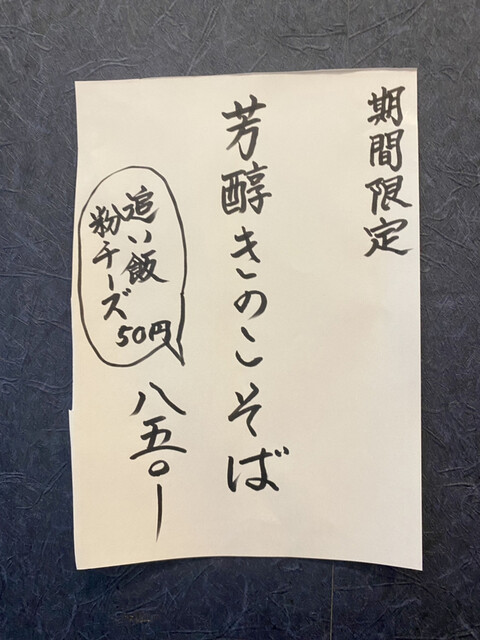 期間限定
芳醇きのこそば
八五〇ー
追い飯
粉チーズ
50円